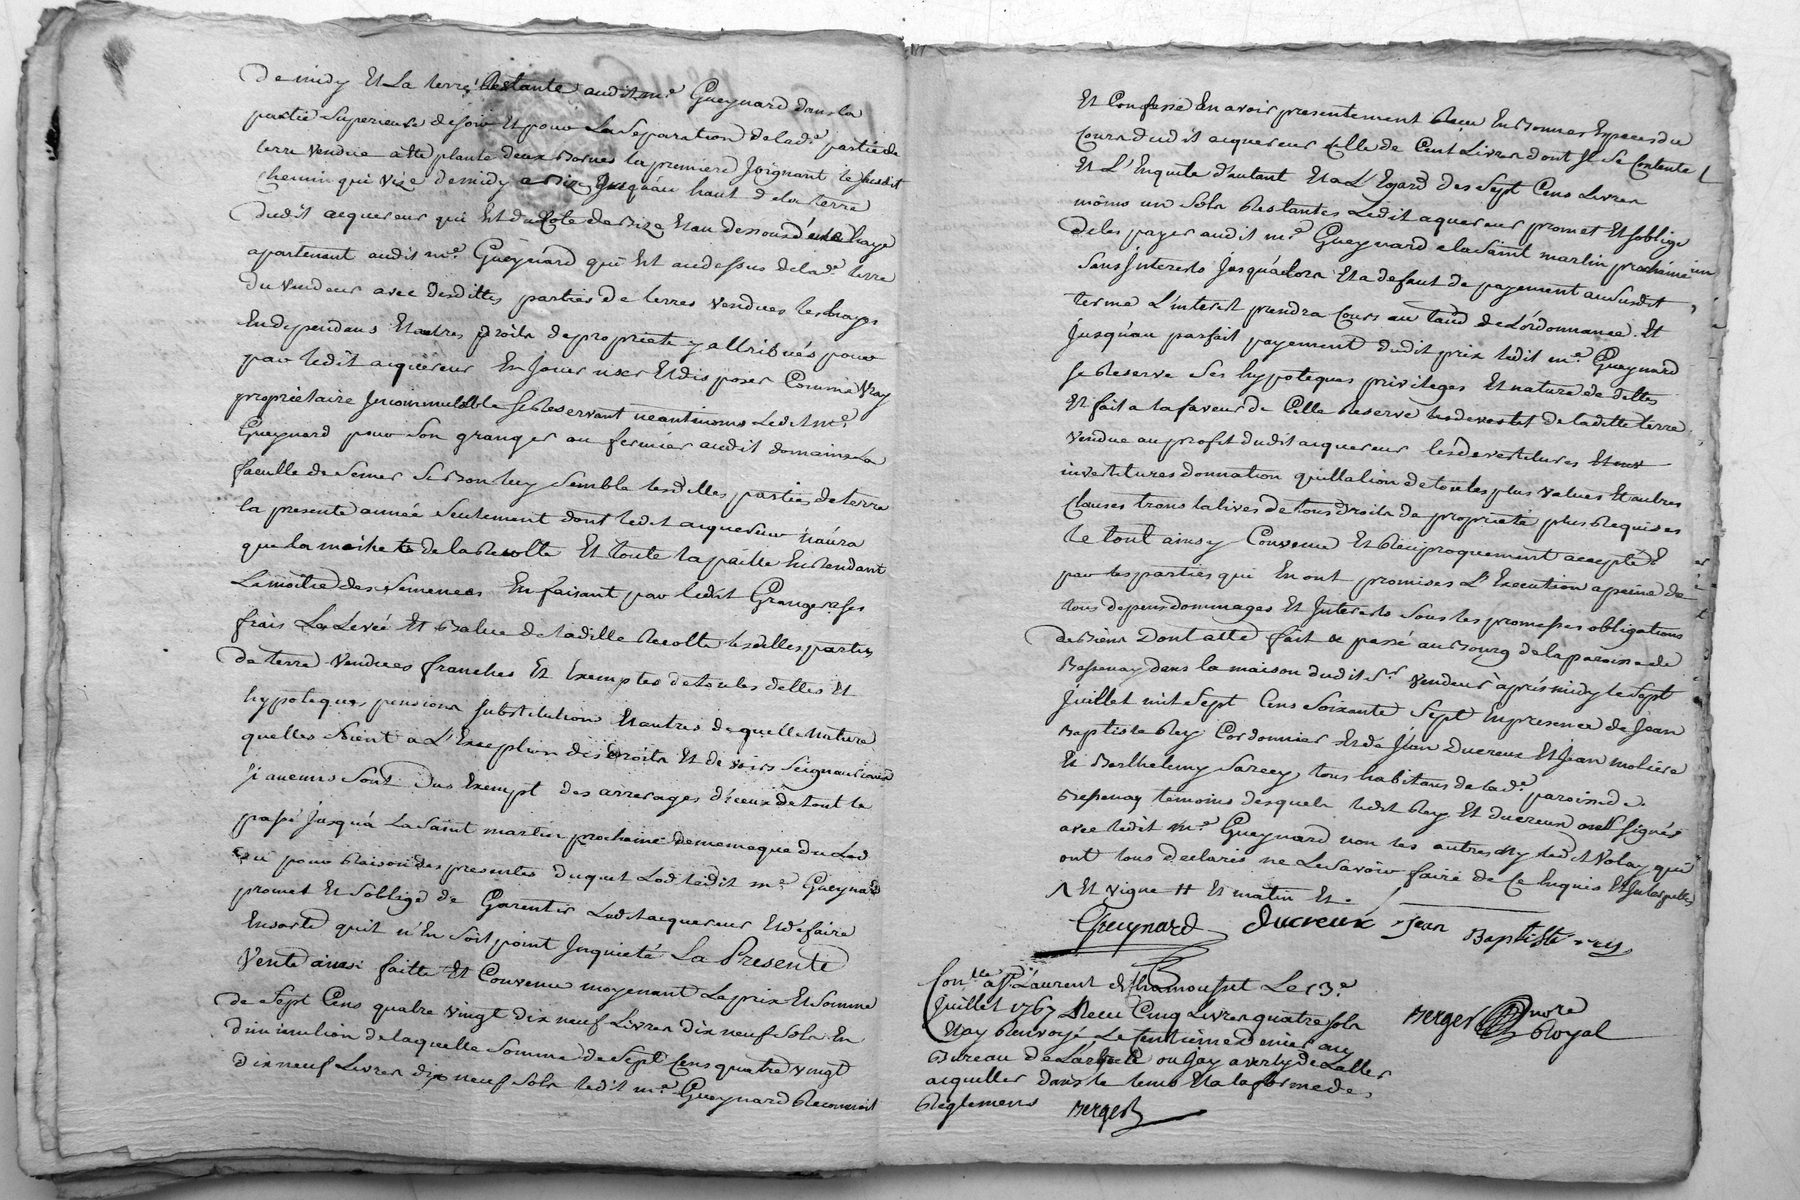 De midy Et La terre Restante audit m.e Gueynard dans la
partie Superieure de soir Et pour La Separation de lad.e partie de
terre vendue a été planté deux Bornes la premiere Joignant le susdit
chemin qui vize de midy a Bize Jusqu'au haut de la terre
dudit acquereur qui Est du Coté de Bize Et au dessous d'une haye
apartenant audit m.e Gueynard qui Est au dessus de lad.e terre
du vendeur avec desdittes parties de terres vendues les hayes
En dependans Et autres droits de proprieté y attribués pour
par ledit acquereur En Jouir user Et disposer Comme vray
proprietaire Incommutable se Reservant neantmoins Ledit m.e
Gueynard pour Son granger ou fermier audit domaine La
faculté de Semer Si Bon luy Semble lesdittes parties de terre
la presente année Seulement dont ledit acquereur n'aura
que la moitié de la Recolte Et toute la paille En Rendant
La moitié des Semences En faisant par ledit Granger a ses
frais La Levée Et Batue de laditte Recolte lesdittes parties
de terre Vendues franches Et Exemptes de toutes dettes Et
hypoteques pensions substitution Et autres de quelle Nature
quelles Soient a L'Exception des droits Et devoirs Seigneuriaux
Si aucuns Sont Dus Exempt des arrerages d'iceux de tout le
passé Jusqu'a La Saint martin prochaine de meme que du Lod
du pour Raison des presentes duquel Lod ledit m.e Gueynard
promet Et Soblige de Garentir Ledit acquereur Et de faire
Ensorte qu'il n'En Soit point Inquieté La Presente
Vente ainsi faitte Et Convenue moyenant Le prix Et Somme
de Sept Cens quatre vingt dix neuf Livres dix neuf Sols En
diminution de laquelle Somme de Sept Cens quatre vingt
dix neuf Livres dix neuf Sols ledit m.e Gueynard Reconnoit
Et Confesse En avoir presentement Reçu En Bonnes Especes du
Cours dudit acquereur Celle de Cent Livres dont Il Se Contente
Et L'Enquite d'autant Et a L'Egard des Sept Cens Livres
moins un Sols Restantes Ledit aquereur promet Et soblige
de les payer audit m.e Gueynard a la Saint martin prochaine
Sans Interets Jusqu'alors Et a defaut de payement audit Susdit
terme L'interet prendra Cours au Taud de L'ordonnance Et
Jusqu'au parfait payement dudit prix ledit m.e Gueynard
se Reserve Ses hypoteques privileges Et nature de dettes
Et fait a la faveur de Cette Reserve
vendue au profit dudit acquereur les devestitures
investitures donnation quittation de toutes plus values Et autres
Clauses translatives de tous droits de proprieté plus Requises
Le tout ainsy Convenu Et Reciproquement accepté
par les parties qui En ont promises L'Execution a peine de
tous depens dommages Et Interets Sous les promesses obligations
de Biens Dont acte fait & passé au Bourg de la paroisse de
Bessenay dans la maison dudit S.r vendeur après midy le Sept
Juillet mil Sept Cens Soixante Sept En presence de Jean
Baptiste Rey Cordonnier Et de Jean Ducreux Et Jean moliere
Et Berthelemy Sarcey, tous habitans de lad.e paroisse de
Bessenay temoins desquels ledit Rey Et ducreux ont signés
avec ledit m.e Gueynard non les autres Ny ledit Volay qui
ont tous declarés ne Le Savoir faire de Ce Enquis Et Interpellés
Et vigne # Et matin Et
Gueynard Ducreux Jean Baptiste Rey
Con.lle a S.t Laurent de Chamousset Le 13.e
Juillet 1767 Reçu Cinq Livres quatre sols
Et ay Renvoyé Le Centieme denier au
Bureau de Larbrele ou Jay averty de Laller
aquitter dans le tems Et a la forme des
Reglemens Berger
Berger Nore
Royal